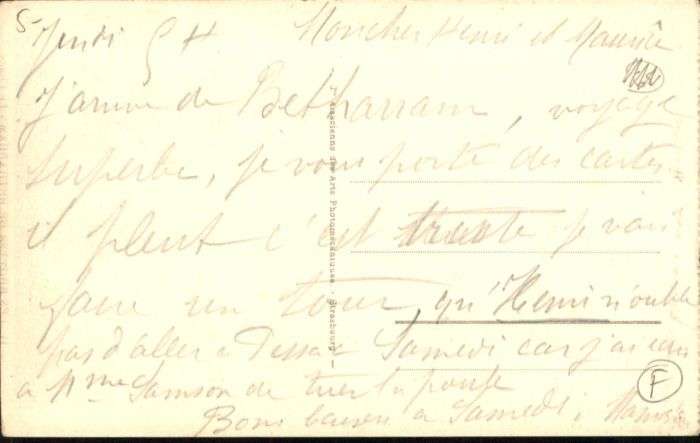 Jeudi 5 H Mon cher Henri et Maurice
J'arrive de Betharram, voyage
superbe, je vous porte des cartes
il pleut c'est triste je vais
faire un tour, qu'Henri n'oublie
pas d'aller a Pessac Samedi car j'ai
a Mme Samson de tuer la poule
Bons baisers a Samedi
Alsacienne des Arts Photomécaniques - Strasbourg
F